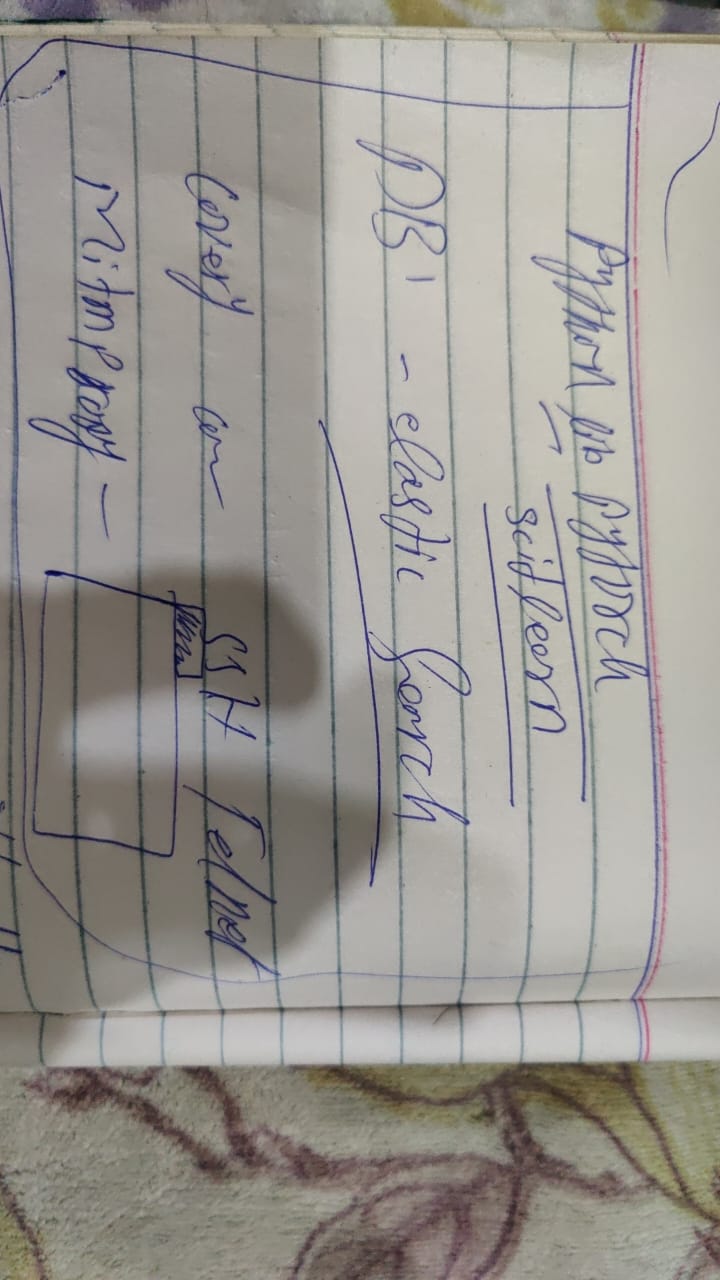 Python lib pytorch
scitlearn
DB' - elastic Search
covery SSH Telnet
Mitmproxy -